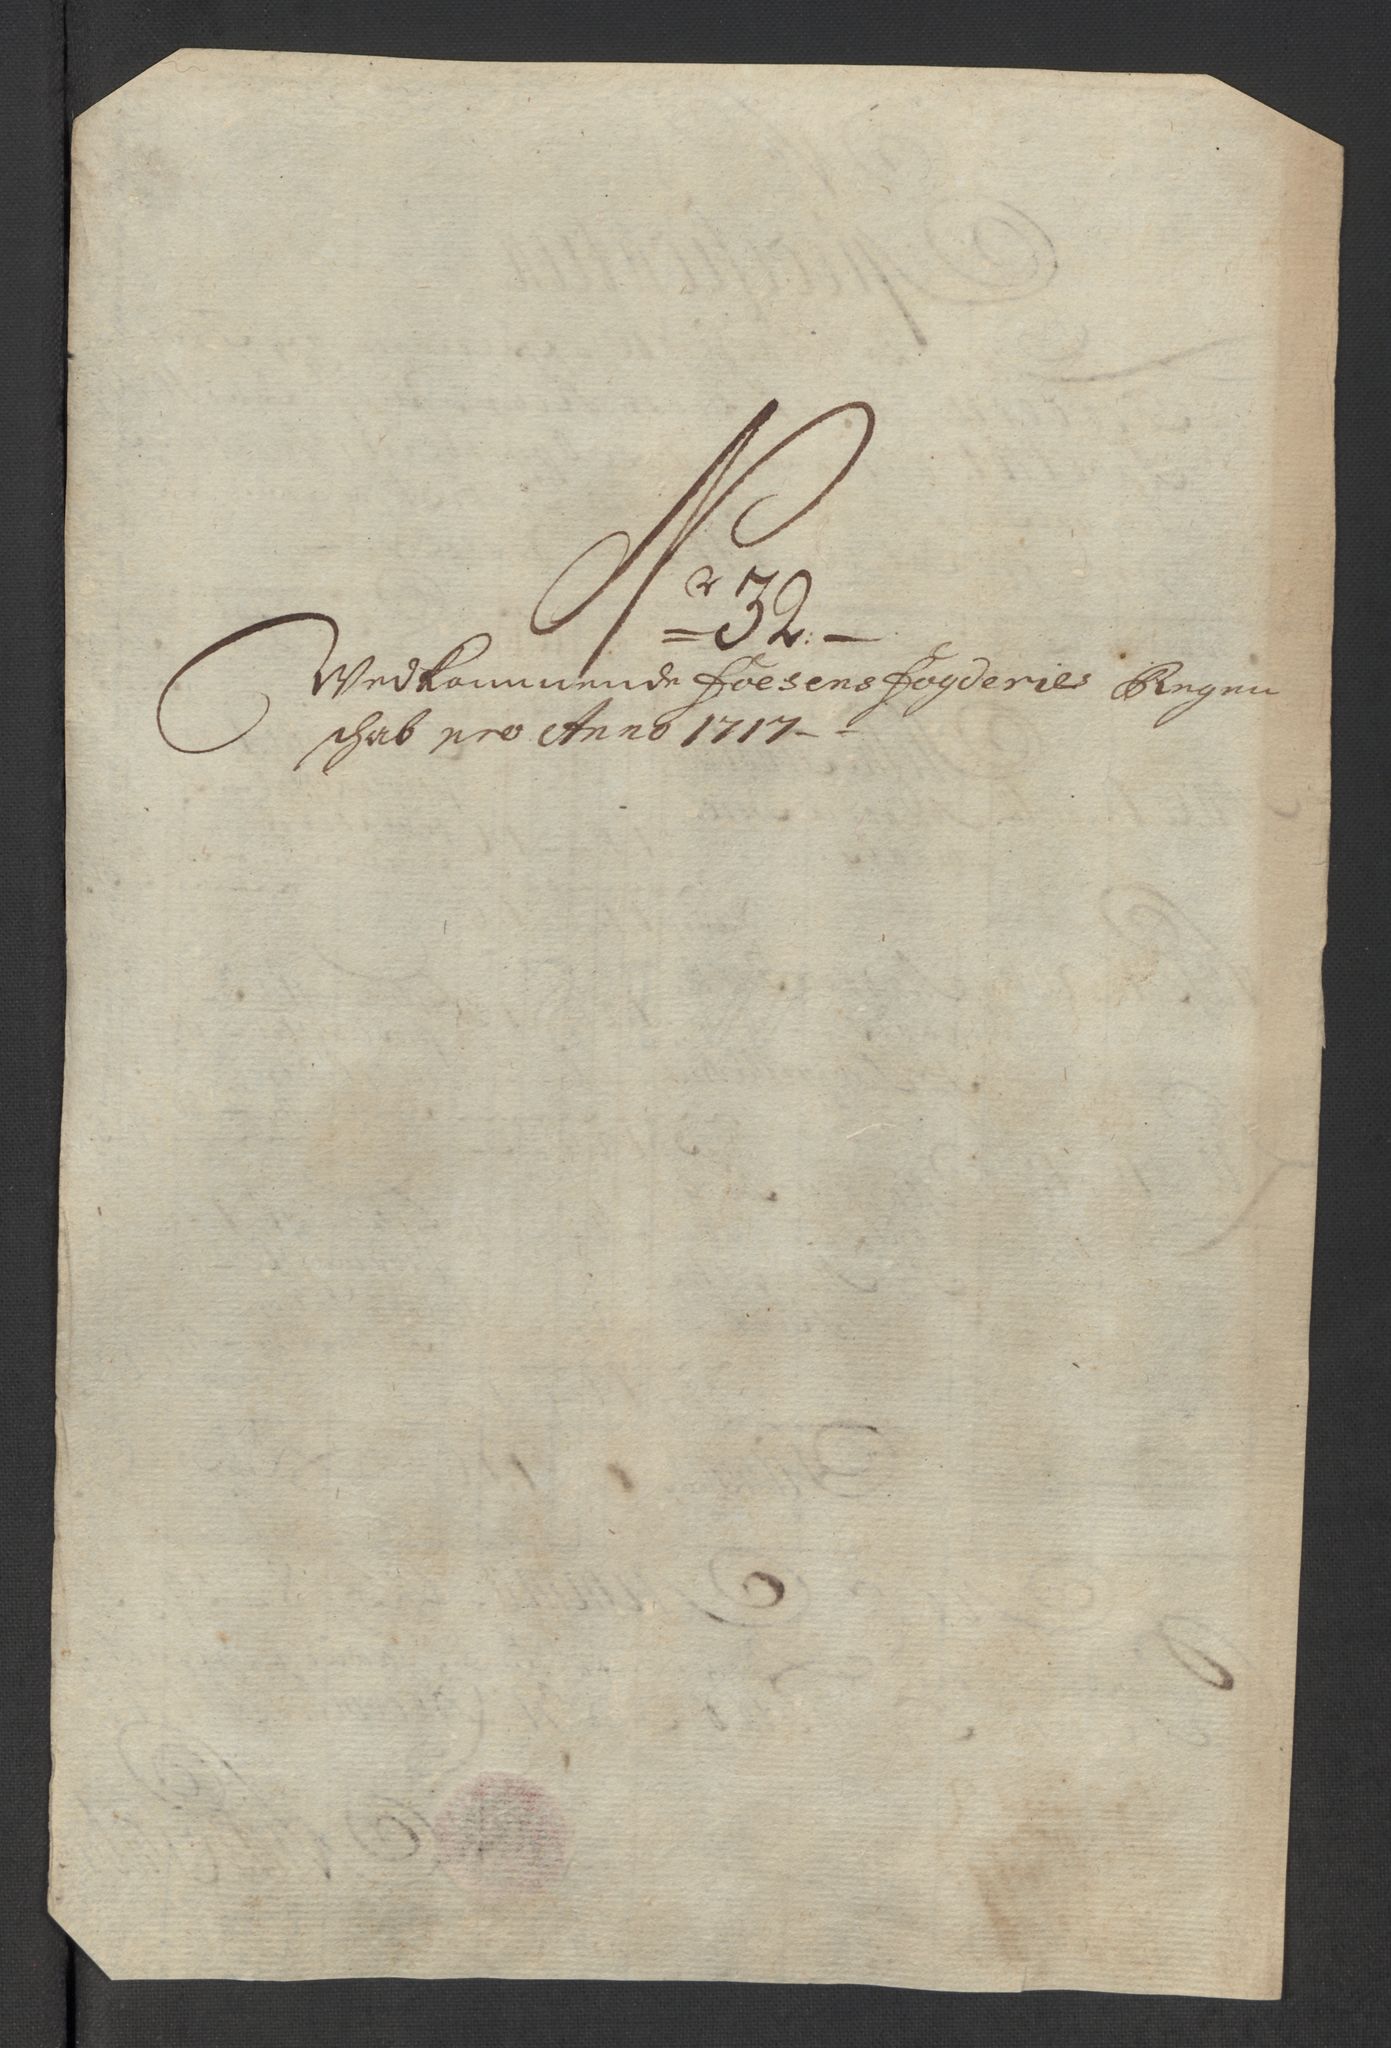 Nr 32.
Vedkommende Foesens Fogderies Regen
schab pro Anno 1717